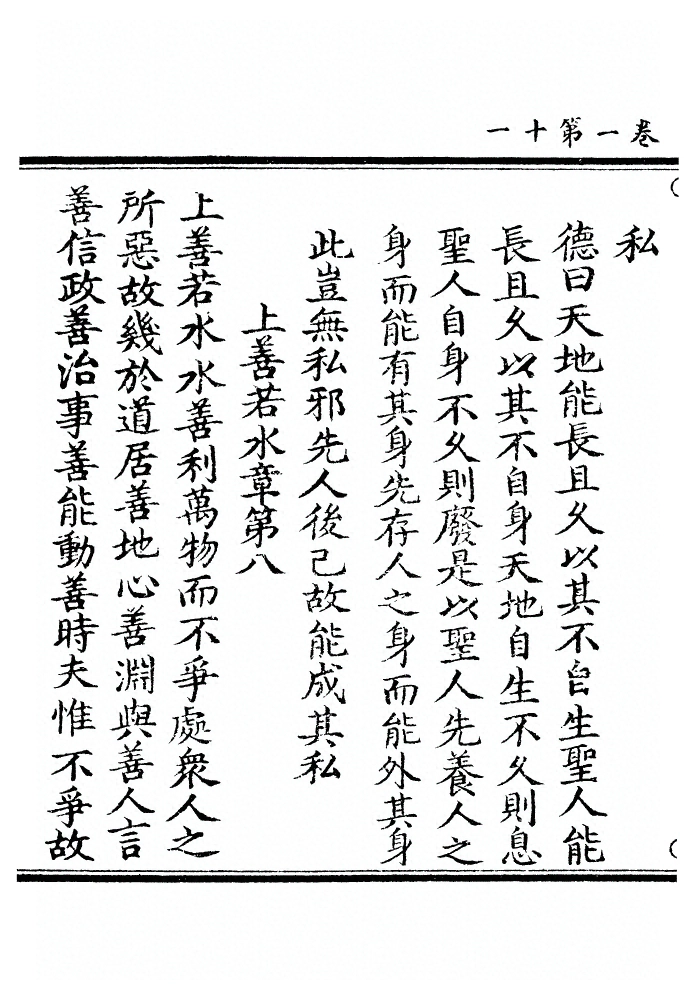 卷一第十一
私
德曰天地能長且久以其不自生聖人能
長且久以其不自身天地自生不久則息
聖人自身不久則廢是以聖人先養人之
身而能有其身先存人之身而能外其身
此豈無私邪先人後己故能成其私
上善若水章第八
上善若水水善利萬物而不爭處衆人之
所惡故幾於道居善地心善淵與善人言
善信政善治事善能動善時夫惟不爭故